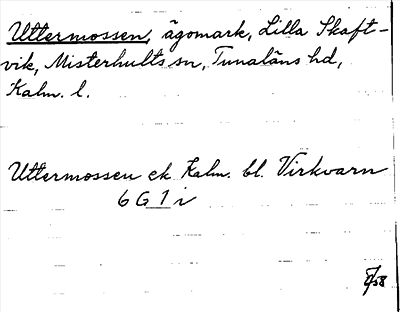 Uttermossen, ägomark, Lilla Skaft-
vik, Misterhults sn, Tunaläns hd,
Kalm. l.
Uttermossen ek Kalm. bl. Virkvarn
6 G 1 i